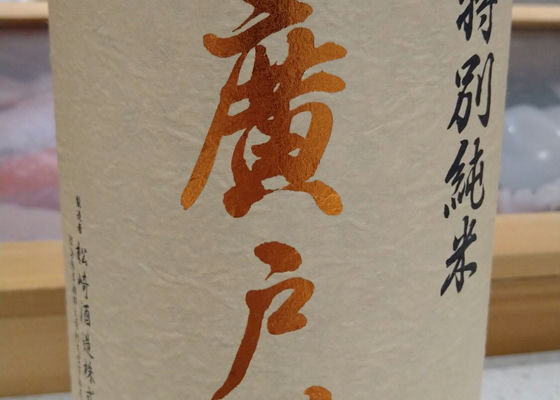 特別純米
廣戸
製造者 松崎酒造株式